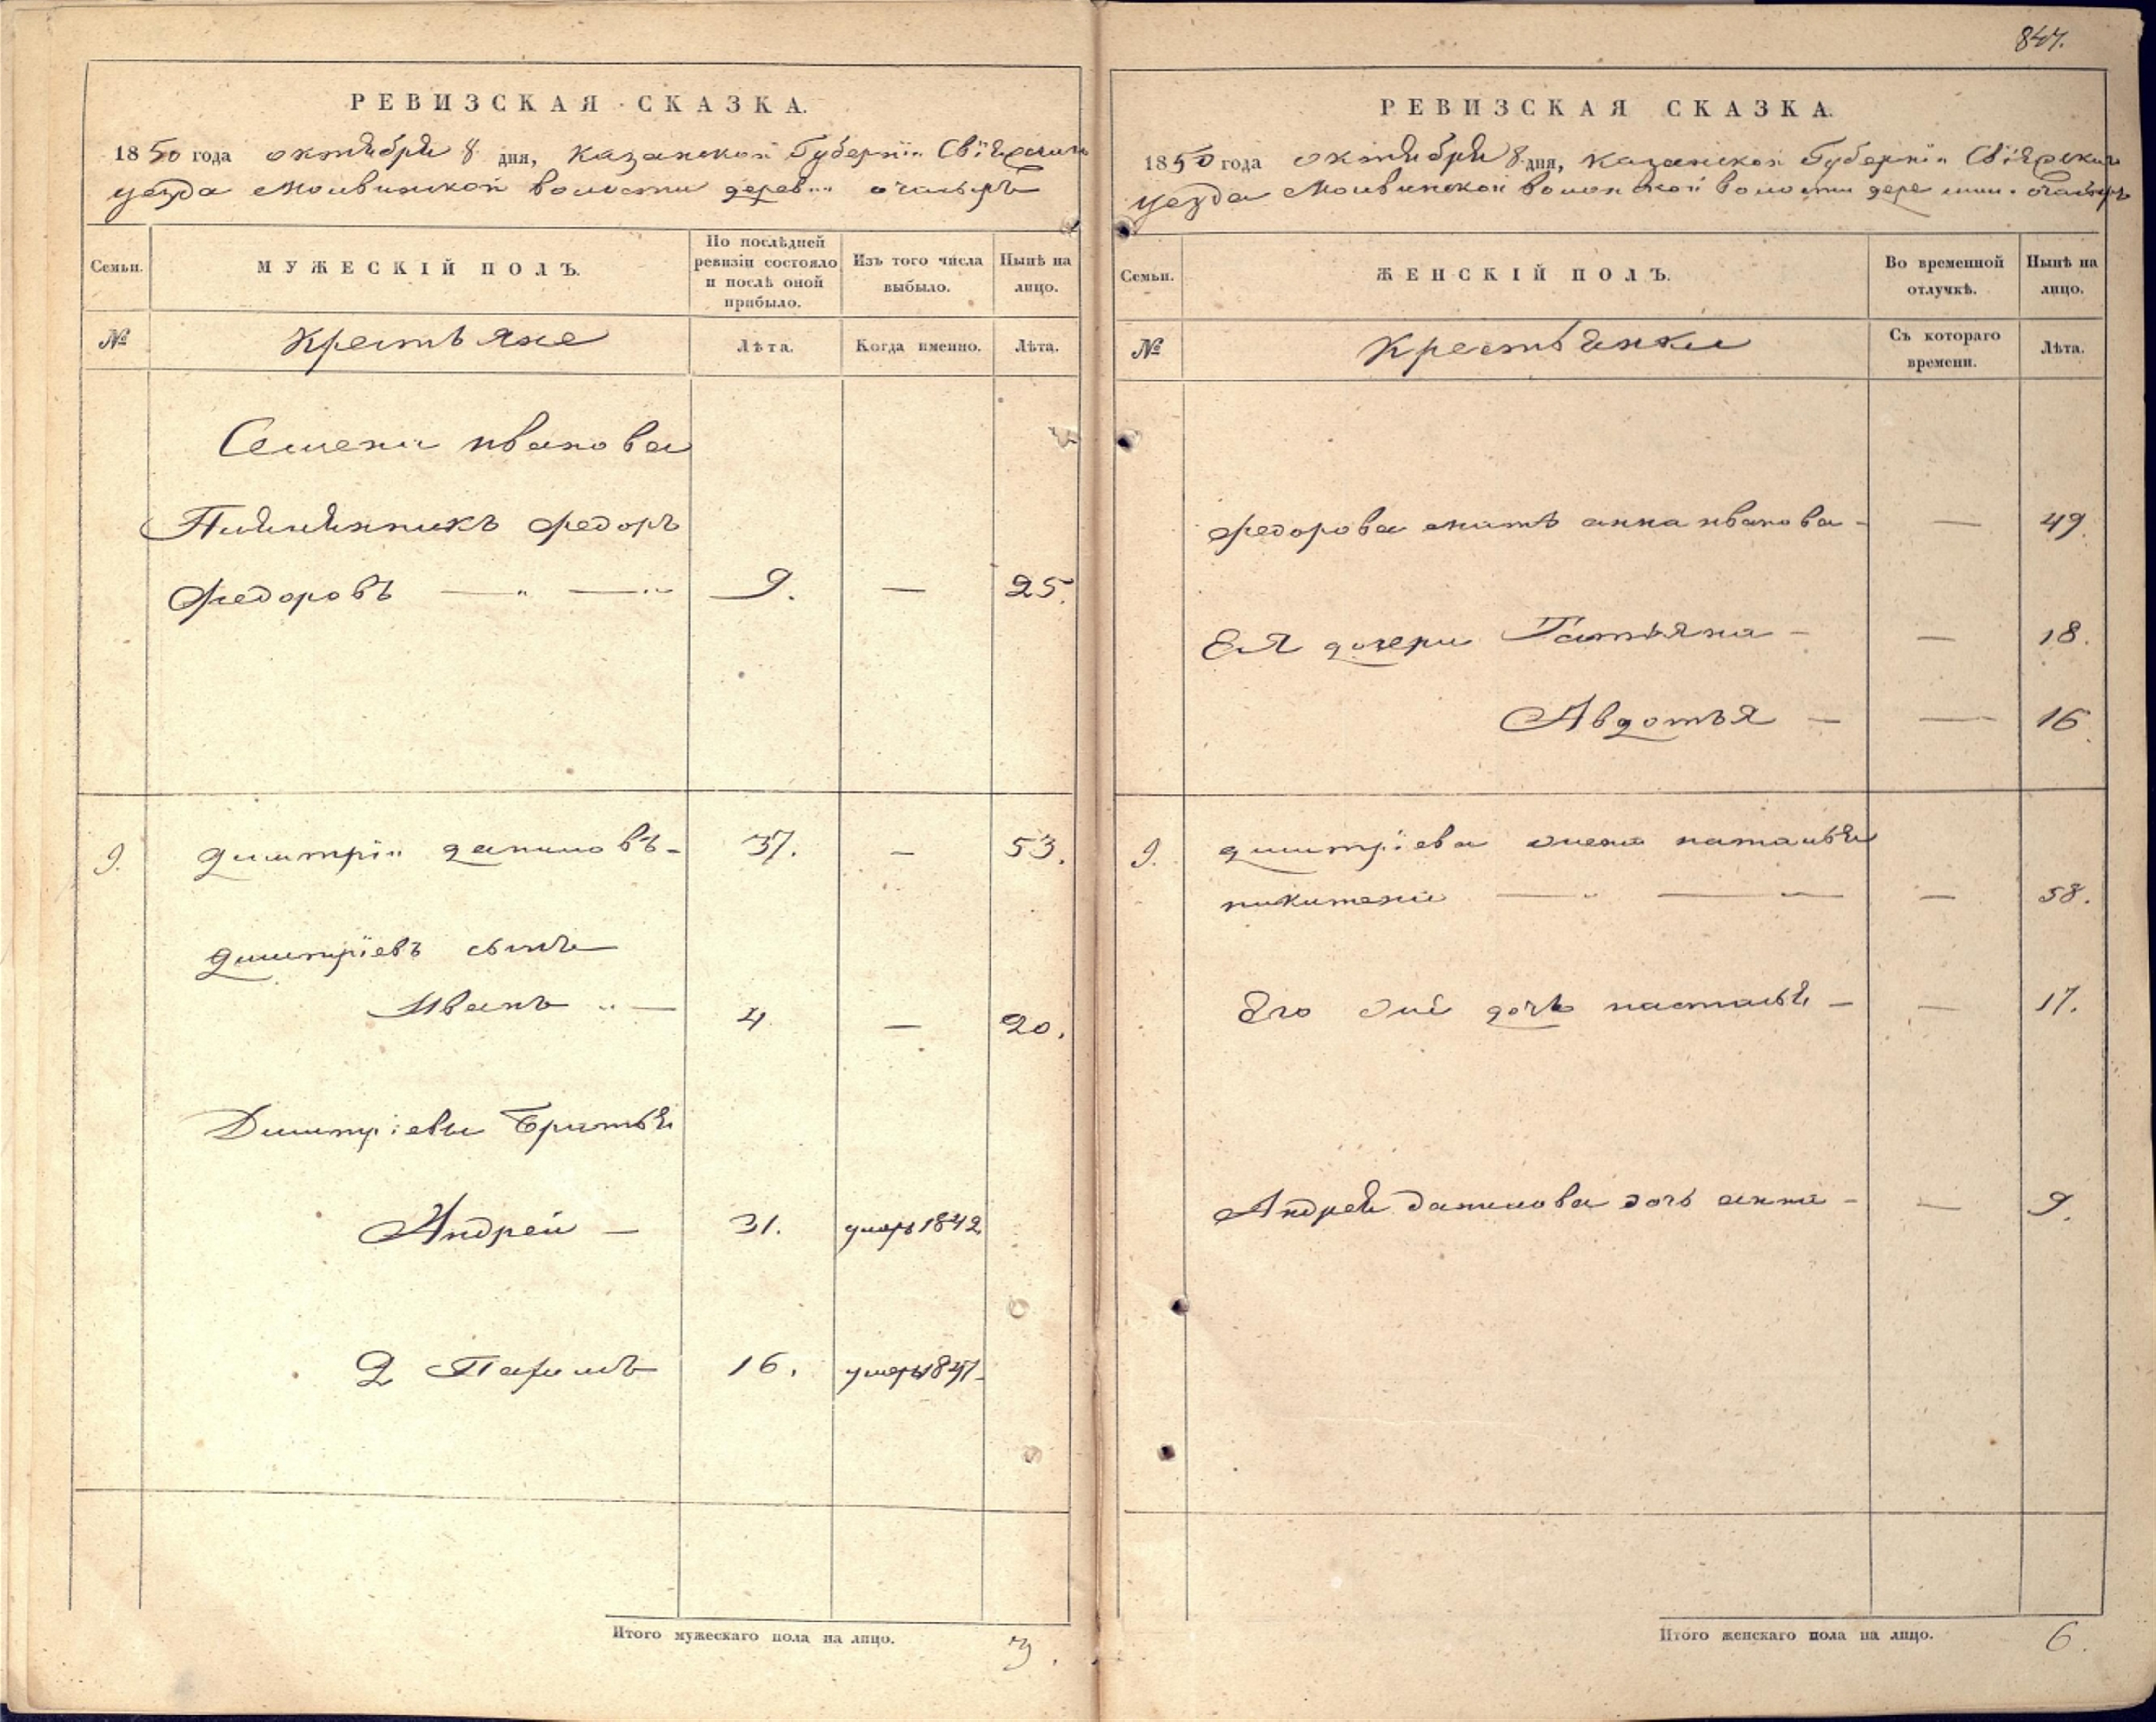 847.
РЕВИЗСКАЯ СКАЗКА.
1850 года октября 8 дня, Казанской Губернїи Свїяжскаго
уезда Моквинской волости дерев
Семьи.
МУЖЕСКІЙ ПОЛЪ.
По послѣдней
ревизіи состояло
и послѣ оной
прибыло.
Изъ того числа
выбыло.
Нынѣ на
лицо.
№
Крестьяне
Лѣта.
Когда именно.
Лѣта.
Семена иванова
Племянникъ Федоръ
Федоровъ — „ — „ 9. — 25.
9. димитрїи даниловъ - 37. — 53.
димитрїевъ сынъ
Иванъ „ — 4 — 20.
Димитрїевы Братья
Андрей — 31. умеръ 1842
2 Парфилъ 16. умеръ 1847
Итого мужескаго пола на лицо. 3.
РЕВИЗСКАЯ СКАЗКА.
1850 года октября 8 дня, Казанской Губернїи Свїяжскаго
уезда волости
Семьи.
ЖЕНСКІЙ ПОЛЪ.
Во временной
отлучкѣ.
Нынѣ на
лицо.
№
Крестьянки
Съ котораго
времени.
Лѣта.
Федорова мать анна иванова - — 49.
Ея дочери Татьяна - — 18.
Авдотья — — 16
9. димитрїева жена наталья
никитена — „ — „ — 58.
Его дочь насталья — — 17.
Андрея данилова дочь анна - — 9.
Итого женскаго пола на лицо. 6.